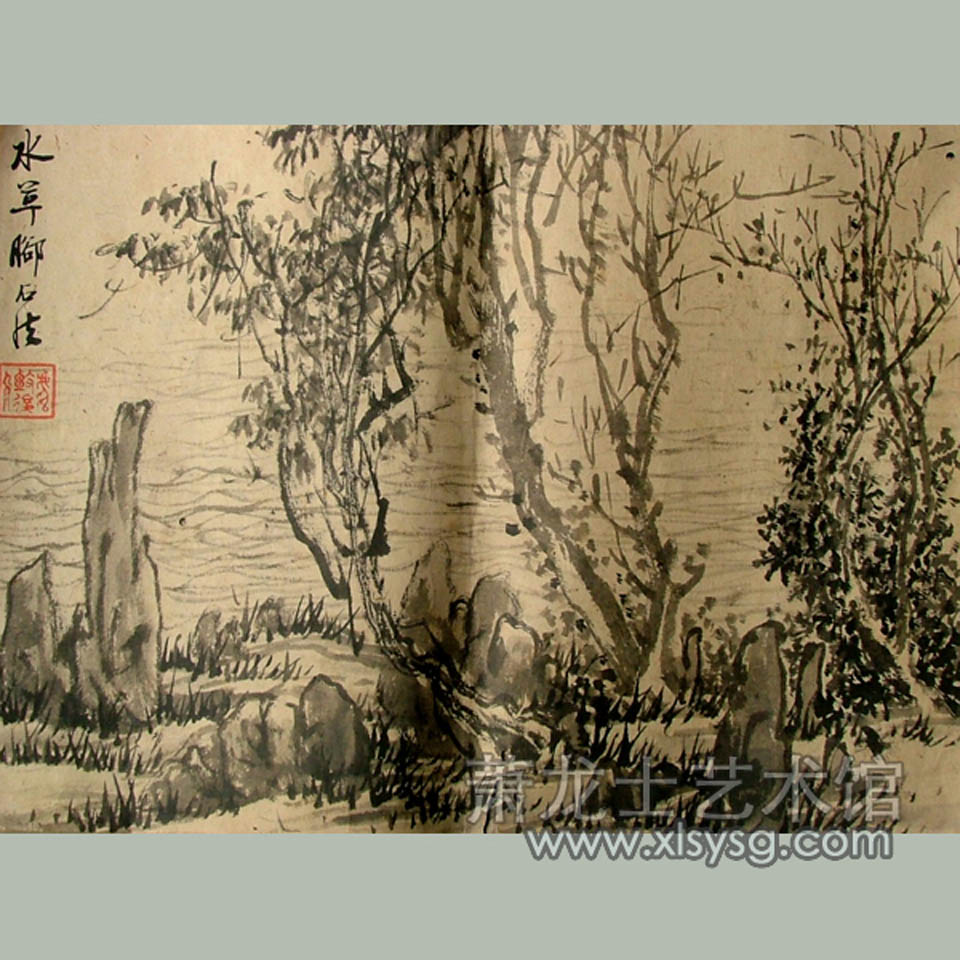 水草腳石法
萧龙士艺术馆
www.xlsysg.com